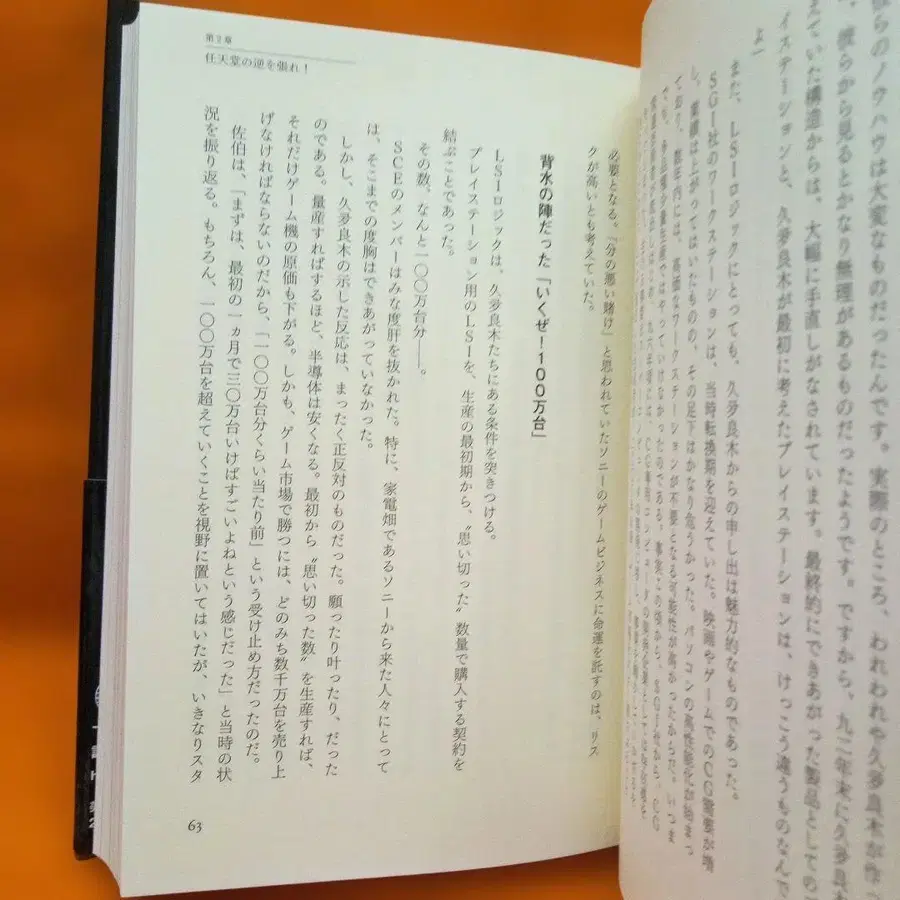 らのノウハウは大変なものだったんです。実際のところ、われわれや久夛良木が作
彼らから見るとかなり無理があるものだったようです。ですから、九二年末に久夛良
えていた構造からは、大幅に手直しがなされています。最終的にできあがった製品としての
イステーションと、久夛良木が最初に考えたプレイステーションは、けっこう違うものなんで
よ」
また、LSIロジックにとっても、久夛良木からの申し出は魅力的なものであった。
SGI社のワークステーションは、当時転換期を迎えていた。映画やゲームでのCG需要が増
し、業績は上がってはいたものの、その足下はかなり危うかった。パソコンの高性能化が
ており、数年内には、高価なワークステーションが不要となる可能性が高かった
必要となる。「分の悪い賭け」と思われていたソニーのゲームビジネスに命運を託すのは、リス
クが高いとも考えていた。
背水の陣だった「いくぜ!100万台」
LSIロジックは、久夛良木たちにある条件を突きつける。
プレイステーション用のLSIを、生産の最初期から、〝思い切った〟数量で購入する契約を
結ぶことであった。
その数、なんと一〇〇万台分――。
SCEのメンバーはみな度肝を抜かれた。特に、家電畑であるソニーから来た人々にとって
は、そこまでの度胸はできあがっていなかった。
しかし、久夛良木の示した反応は、まったく正反対のものだった。願ったり叶ったり、だった
のである。量産すればするほど、半導体は安くなる。最初から〝思い切った数〟を生産すれば、
それだけゲーム機の原価も下がる。しかも、ゲーム市場で勝つには、どのみち数千万台を売り上
げなければならないのだから、「一〇〇万台分くらい当たり前」という受け止め方だったのだ。
佐伯は、「まずは、最初の一ヵ月で三〇万台いけばすごいよねという感じだった」と当時の状
況を振り返る。もちろん、一〇〇万台を超えていくことを視野に置いてはいたが、いきなりスタ
第2章
任天堂の逆を張れ!
63